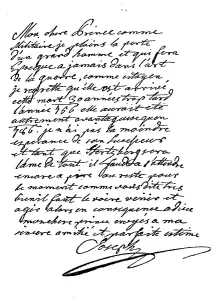 Mon cher Prince comme
Militaire je plains la perte
d'un grand homme et qui fera
époque a jamais dans l'art
de la guerre, comme citoyen
je regrette qu'elle est arrivé
cette mort 30 années trop tard
l'année 756 elle aurait été
autrement avantageuse quen
786. je n'ai pas la moindre
esperance de son successeur
et tant que Hertzberg sera
l'ame de tout il faudra s'attendre
encore a pire au reste pour
le moment comme vous dites tres
bien il faut le voire venir et
agir alors en consequence adieu
mon cher prince croyés a ma
sincere amitié et parfaite estime
Joseph